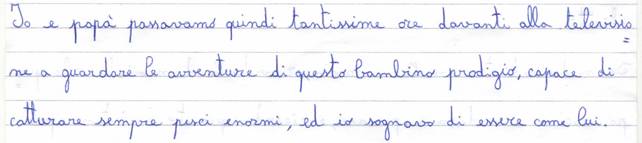 Io e papà passavamo quindi tantissime ore davanti alla televisio=
ne a guardare le avventure di questo bambino prodigio, capace di
catturare sempre pesci enormi, ed io sognavo di essere come lui.